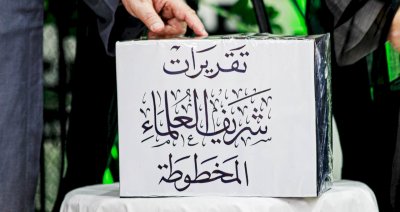 تقريرات
شريف العلماء
المخطوطة